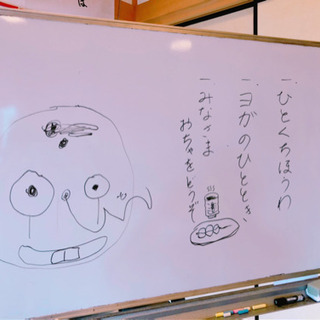 一.ひとくちほうわ
一.ヨガのひととき
一.みなさま
おちゃをどうぞ
は